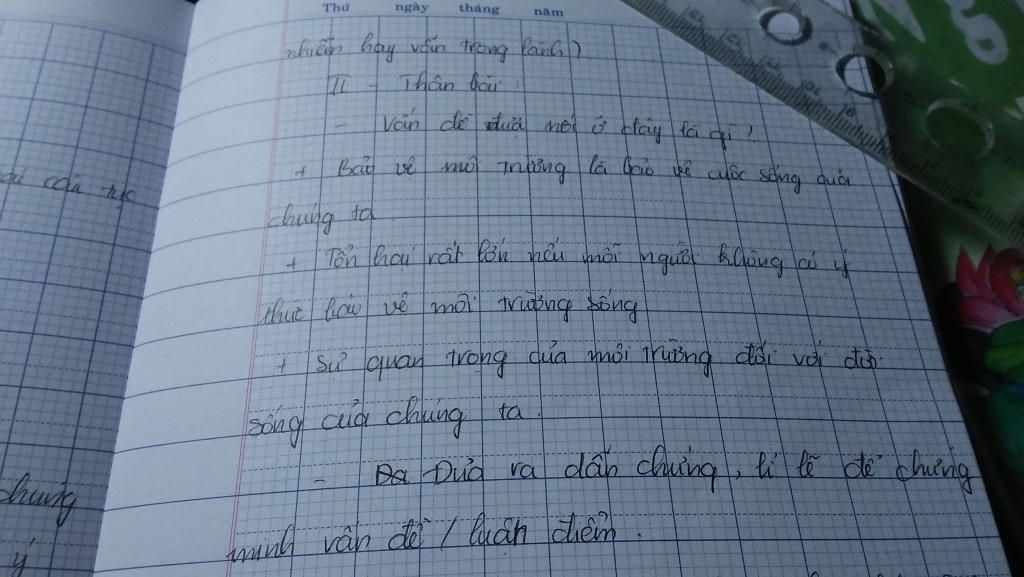 Thứ ngày tháng năm
nhiễm hay vẫn trong lành)
II - Thân bài:
- Vấn đề đưa nói ở đây là gì?
+ Bảo vệ môi trường là bảo vệ cuộc sống của
chúng ta
+ Tổn hại rất lớn nếu mỗi người không có ý
thức bảo vệ môi trường sống
+ Sự quan trọng của môi trường đối với đời
sống của chúng ta.
- Đưa ra dẫn chứng, lí lẽ để chứng
minh vấn đề / luận điểm.
chung
ý